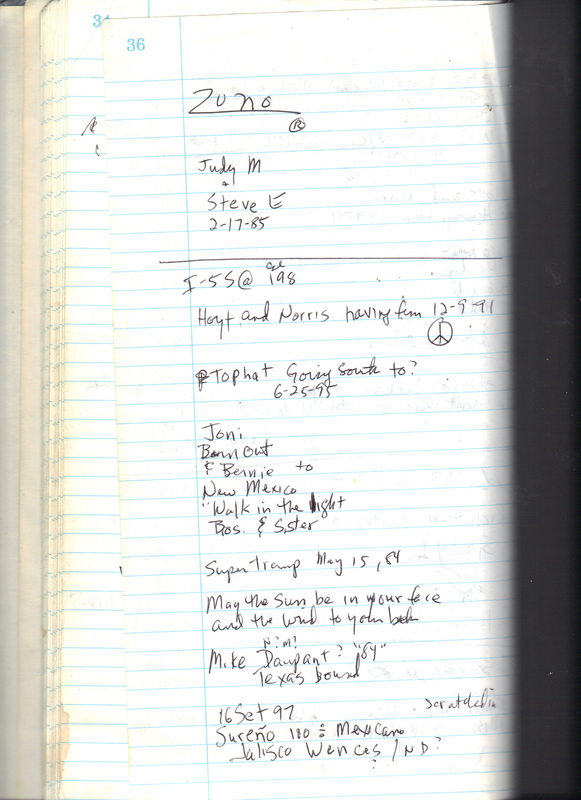 36
Zuno
R
Judy M
+
Steve E
2-17-85
cal
I-5S@ 198
Hoyt and Norris having fun 12-9-91
Tophat Going South to?
6-25-95
Joni
Burn Out
& Bernie to
New Mexico
"Walk in the light
Bros. & Sister
Supertramp May 15, 84
May the Sun be in your face
and the wind to your back
N? M?
Mike Daupant? "84"
Texas bound
16 Set 97
Sureño 100 % Mexicano
Jalisco Wences / ND?
?